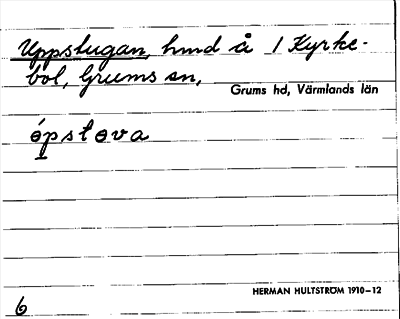 Uppstugan, hmd å 1 Kyrke-
bol, Grums sn,
Grums hd, Värmlands län
ópstəva
HERMAN HULTSTRÖM 1910–12
6